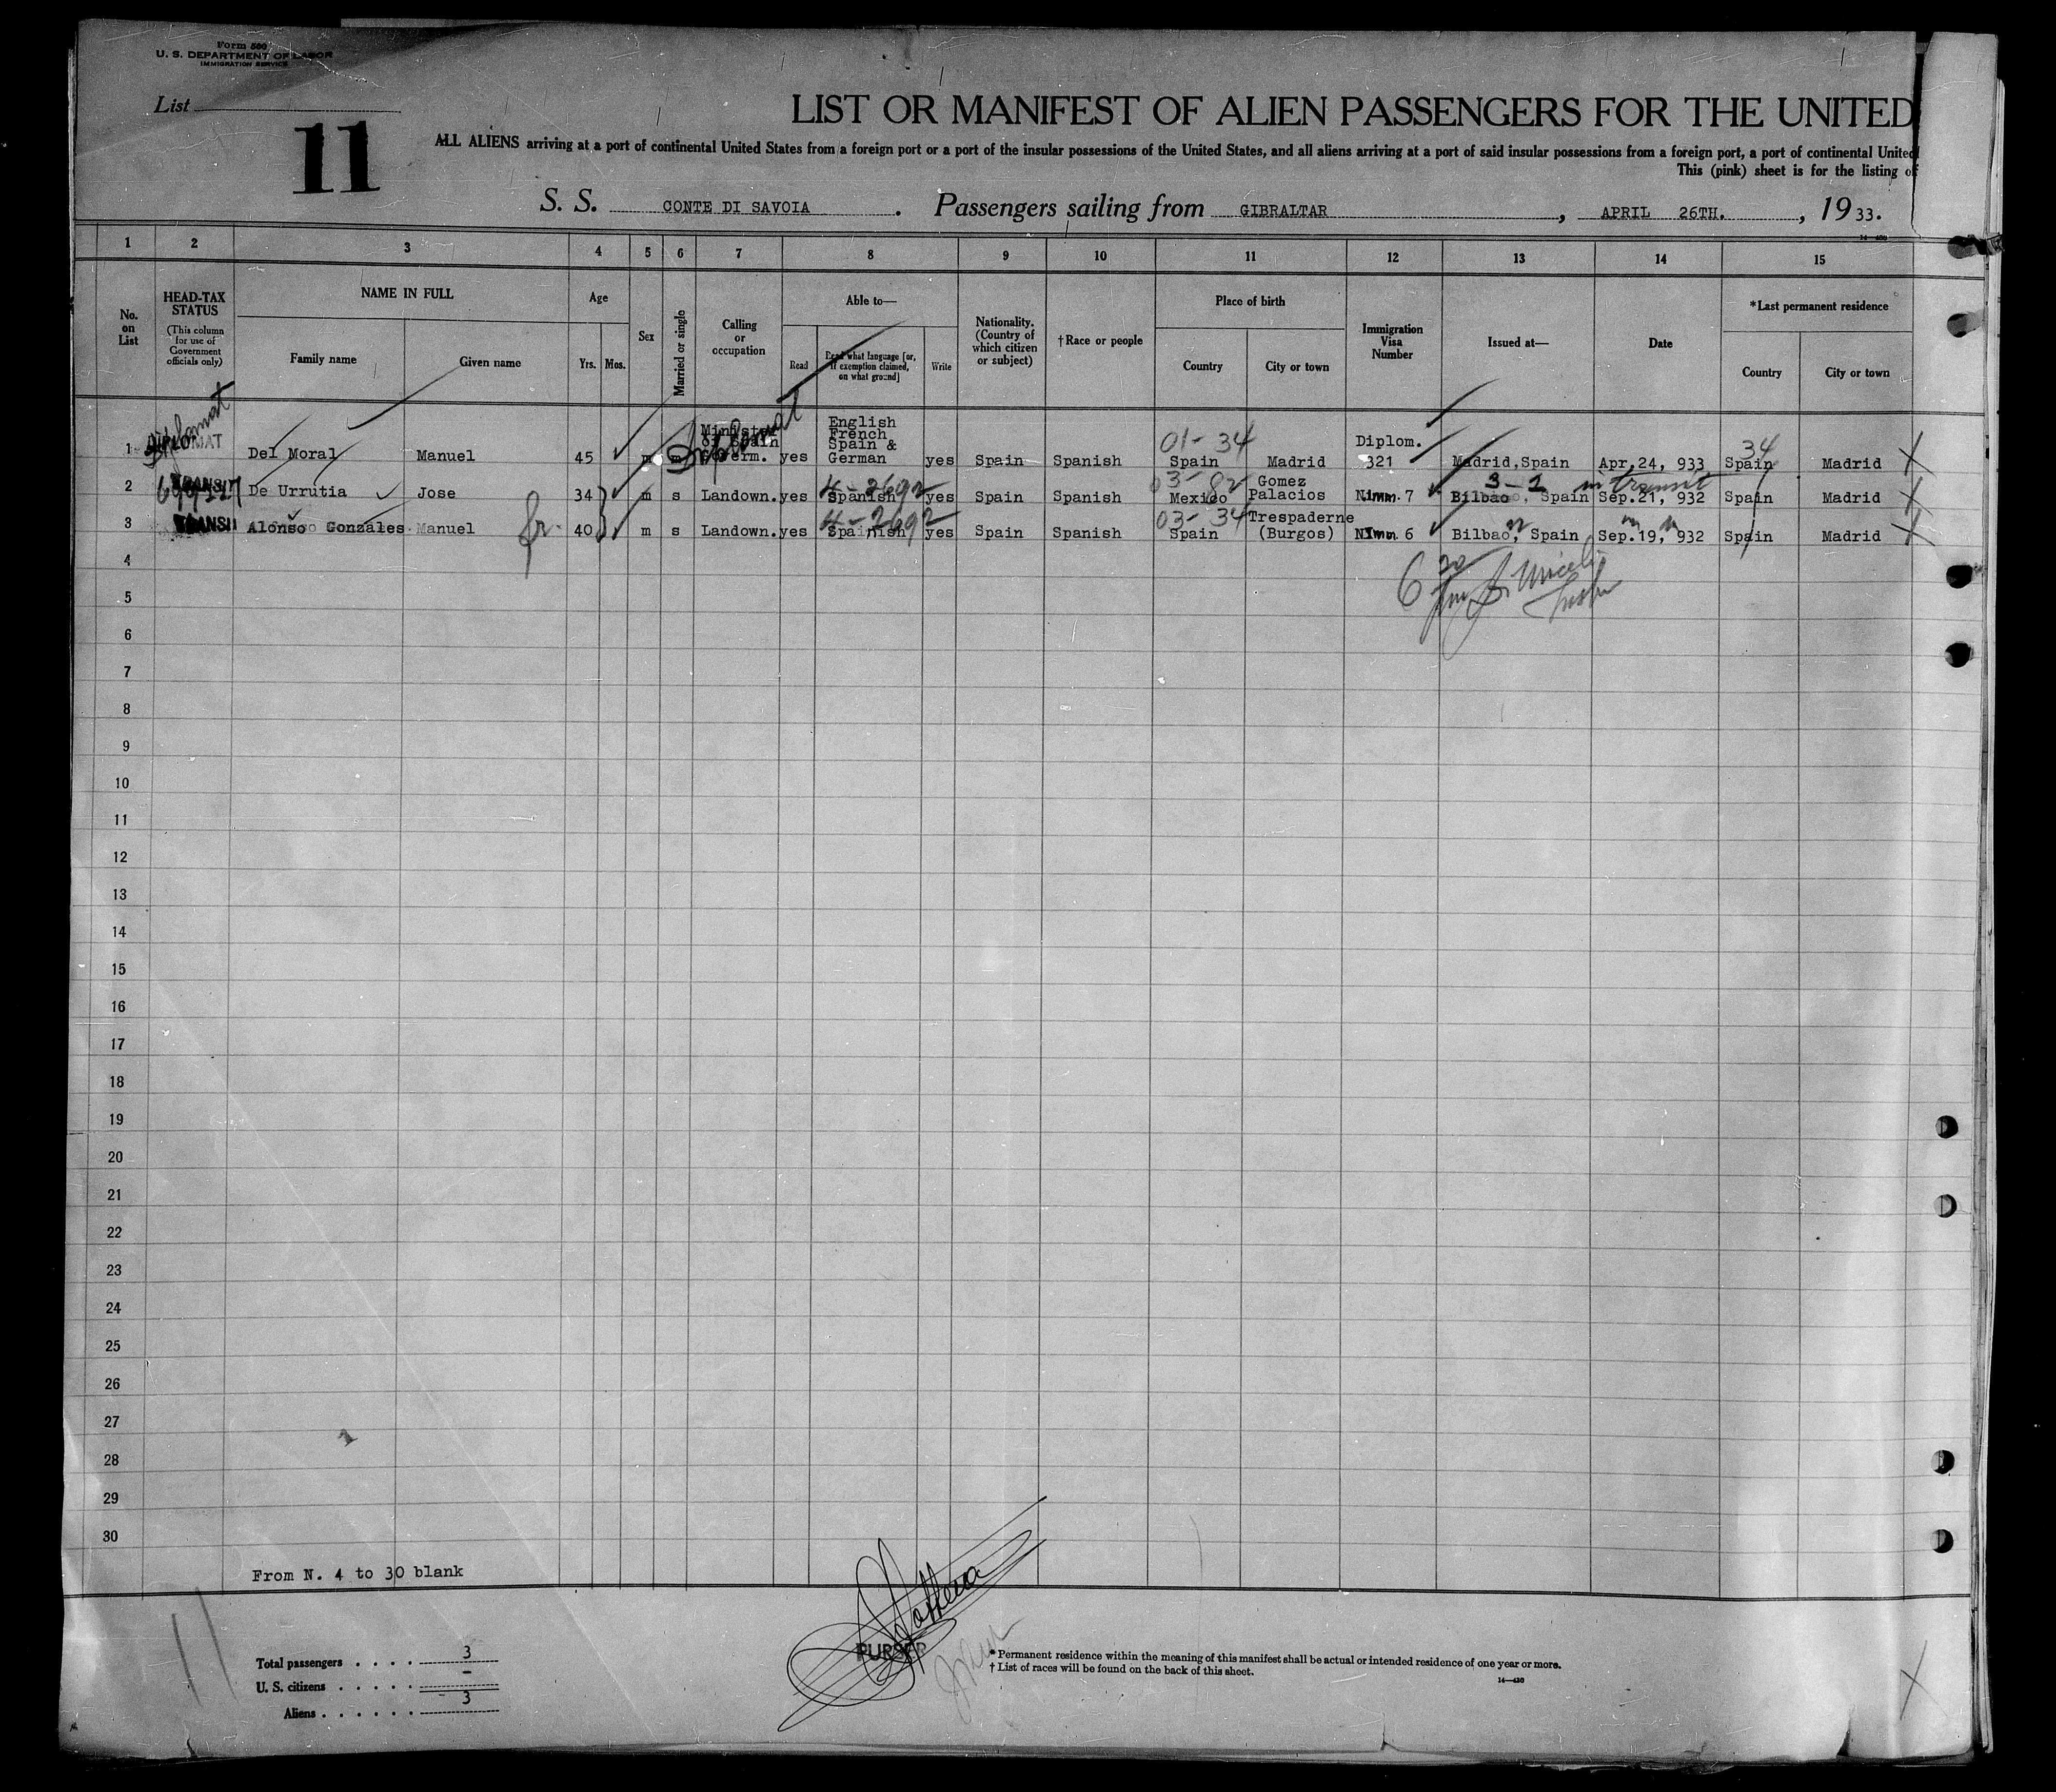 Form 500
U. S. DEPARTMENT OF LABOR
IMMIGRATION SERVICE
List
11
LIST OR MANIFEST OF ALIEN PASSENGERS FOR THE UNITED
ALL ALIENS arriving at a port of continental United States from a foreign port or a port of the insular possessions of the United States, and all aliens arriving at a port of said insular possessions from a foreign port, a port of continental United
This (pink) sheet is for the listing of
S. S. CONTE DI SAVOIA . Passengers sailing from GIBRALTAR , APRIL 26TH. , 19 33.
1 2 3 4 5 6 7 8 9 10 11 12 13 14 15
No. on List
HEAD-TAX STATUS
(This column for use of Government officials only)
NAME IN FULL
Family name
Given name
Age
Yrs. Mos.
Sex
Married or single
Calling or occupation
Able to—
Read
Read what language [or, if exemption claimed, on what ground]
Write
Nationality. (Country of which citizen or subject)
†Race or people
Place of birth
Country
City or town
Immigration Visa Number
Issued at—
Date
*Last permanent residence
Country
City or town
Diplomat
1 DIPLOMAT Del Moral Manuel 45 m m Minister of Spain Goverm. Diplomat yes English French Spain & German yes Spain Spanish 01-34 Spain Madrid Diplom. 321 Madrid,Spain Apr,24, 933 34 Spain Madrid
2 TRANSIT De Urrutia Jose 34 m s Landown. yes 4-2692 Spanish yes Spain Spanish 03-82 Mexico Gomez Palacios 7 3-1 in transit Bilbao, Spain Sep.21, 932 Spain Madrid
3 TRANSIT Alonso Gonzales Manuel 40 m s Landown. yes 4-2692 Spainish yes Spain Spanish 03-34 Spain Trespaderne (Burgos) 6 Bilbao, Spain Sep.19, 932 Spain Madrid
4
5
6
7
8
9
10
11
12
13
14
15
16
17
18
19
20
21
22
23
24
25
26
27
28
29
30
From N. 4 to 30 blank
11
Total passengers . . . . 3
U. S. citizens . . . . . -
Aliens . . . . . . 3
PURSER
* Permanent residence within the meaning of this manifest shall be actual or intended residence of one year or more.
† List of races will be found on the back of this sheet.
14—430